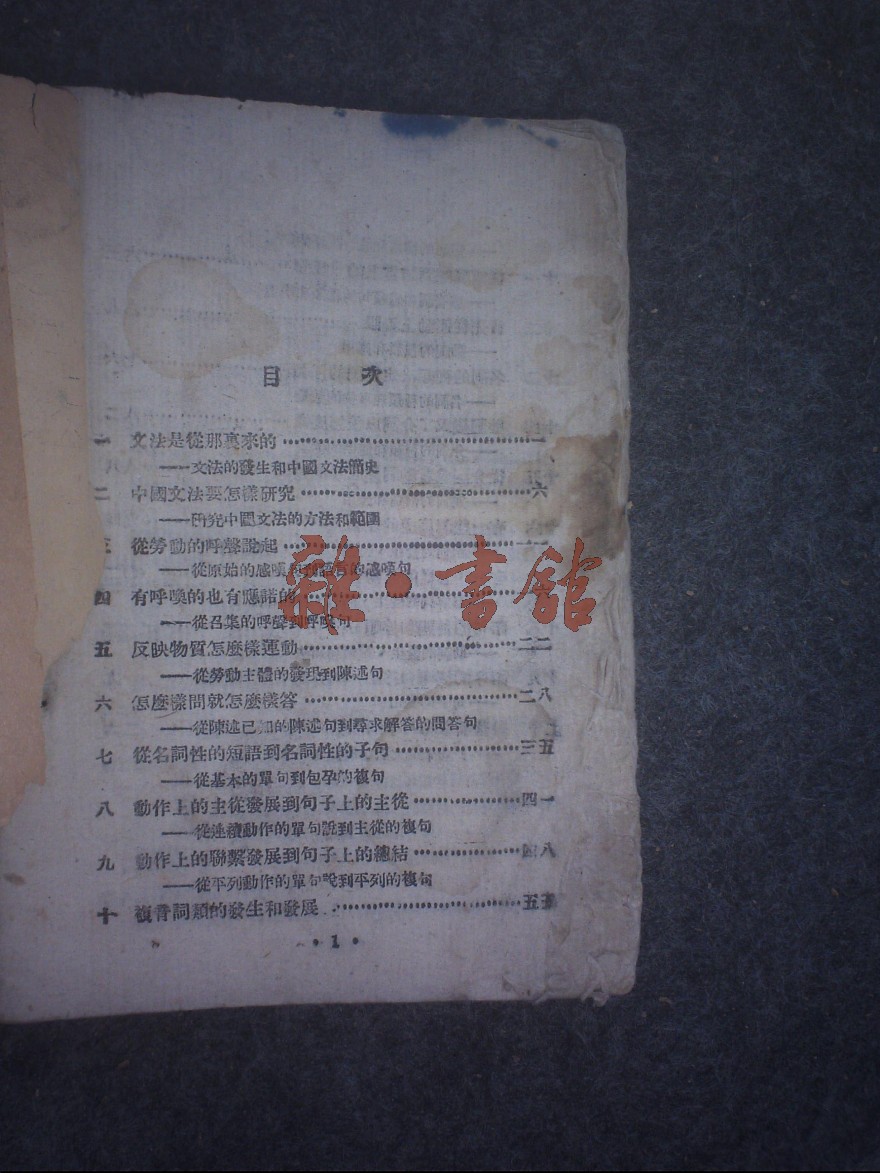 目 次
一 文法是從那裏來的……………………一
——文法的發生和中國文法簡史
二 中國文法要怎樣研究……………………六
——研究中國文法的方法和範圍
三 從勞動的呼聲說起……………………一一
——從原始的感嘆 的感嘆句
四 有呼喚的也有應諾的……………………
——從召集的呼聲到呼喚句
雜·書館
五 反映物質怎麼樣運動……………………二二
——從勞動主體的發現到陳述句
六 怎麼樣問就怎麼樣答……………………二八
——從陳述已知的陳述句到尋求解答的問答句
七 從名詞性的短語到名詞性的子句……………………三五
——從基本的單句到包孕的複句
八 動作上的主從發展到句子上的主從……………………四一
——從連續動作的單句說到主從的複句
九 動作上的聯繫發展到句子上的總結……………………四八
——從平列動作的單句說到平列的複句
十 複音詞類的發生和發展……………………五五
·1·